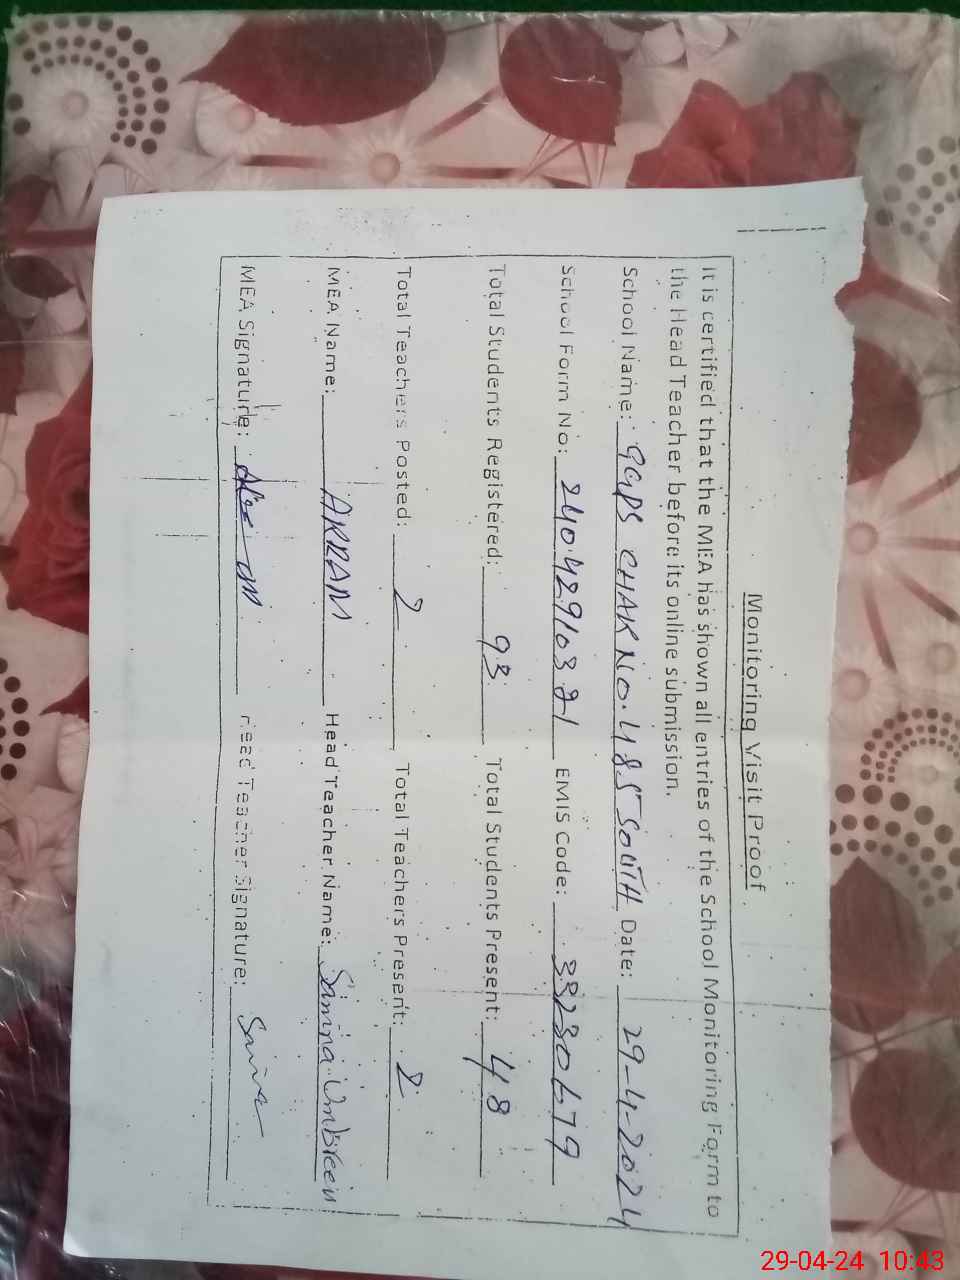 Monitoring Visit Proof
It is certified that the MEA has shown all entries of the School Monitoring Form to
the Head Teacher before its online submission.
School Name: GGPS CHAK NO. 485 SOUTH Date: 29-4-2024
School Form No: 24042910321 EMIS Code: 33230679
Total Students Registered: 93 Total Students Present: 48
Total Teachers Posted: 2 Total Teachers Present: 2
MEA Name: AKRAM Head Teacher Name: Saima Umbreen
MEA Signature: Head Teacher Signature: Saima
29-04-24 10:43